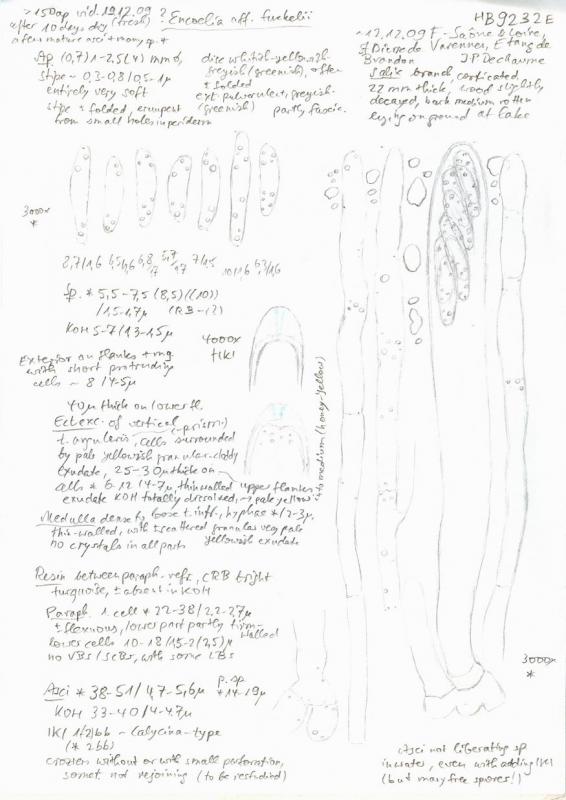 >150 ap vid. 19.12.09 ? Encoelia aff. fuckelii
after 10 days dry (fresh)
a few mature asci + many sp. *
HB 9232 E
Ap (0,7) 1-2,5(4) mm Ø,
stipe ~ 0,3-0,8/0,5-1 µ
entirely very soft
stipe ± folded, erumpent
from small holes in periderm
disc whitish-yellowish-
greyish (greenish), often
± folded
ext. pulverulent, greyish-
(greenish) partly fascic.
~12.12.09 F - Saône & Loire,
St Pierre de Varennes, Etang de
Brandon JP Dechaume
Salix branch corticated,
22 mm thick, wood slightly
decayed, bark medium rotten
lying on ground at lake
3000x
*
8,7/1,6 6,5/1,6 6,8/1,7 5,7/1,7 7/1,5 10/1,6 6,3/1,6
Sp. * 5,5-7,5 (8,5) ((10))
/1,5-1,7µ
KOH 5-7/1,3-1,5µ
4000x
† IKI
Exterior on flanks + mg
with short protruding
cells ~ 8/4-5µ
40µ thick on lower fl.
Ect. exc. of vertical (-prism.)
t. angularis, cells surrounded
by pale yellowish granular-cloddy
exudate, 25-30µ thick on
upper flanks
cells * 6-12/4-7µ, thin walled
exudate KOH totally dissolved, → pale yellow
into medium (honey-yellow)
Medulla dense to loose t. int., hyphae */2-3µ,
thin-walled, with scattered granular very pale
yellowish exudate
no crystals in all parts
Resin between paraph. refr., CRB bright
turquoise, ± absent in KOH
Paraph. 1. cell * 22-38/2,2-2,7µ
± flexuous, lower part partly firm-
walled
lower cells 10-18/1,5-2(2,5)µ
no VBs/SCBs, with some LBs
Asci * 38-51/4,7-5,6µ p. sp. * 14-19µ
KOH 33-40/4-4,7µ
IKI 1(2)bb ~ Calycina-type
(* 2bb)
croziers without or with small perforation,
somet. not rejoining (to be restudied)
3000x
*
Asci not liberating sp
in water, even with adding IKI
(but many free spores!)